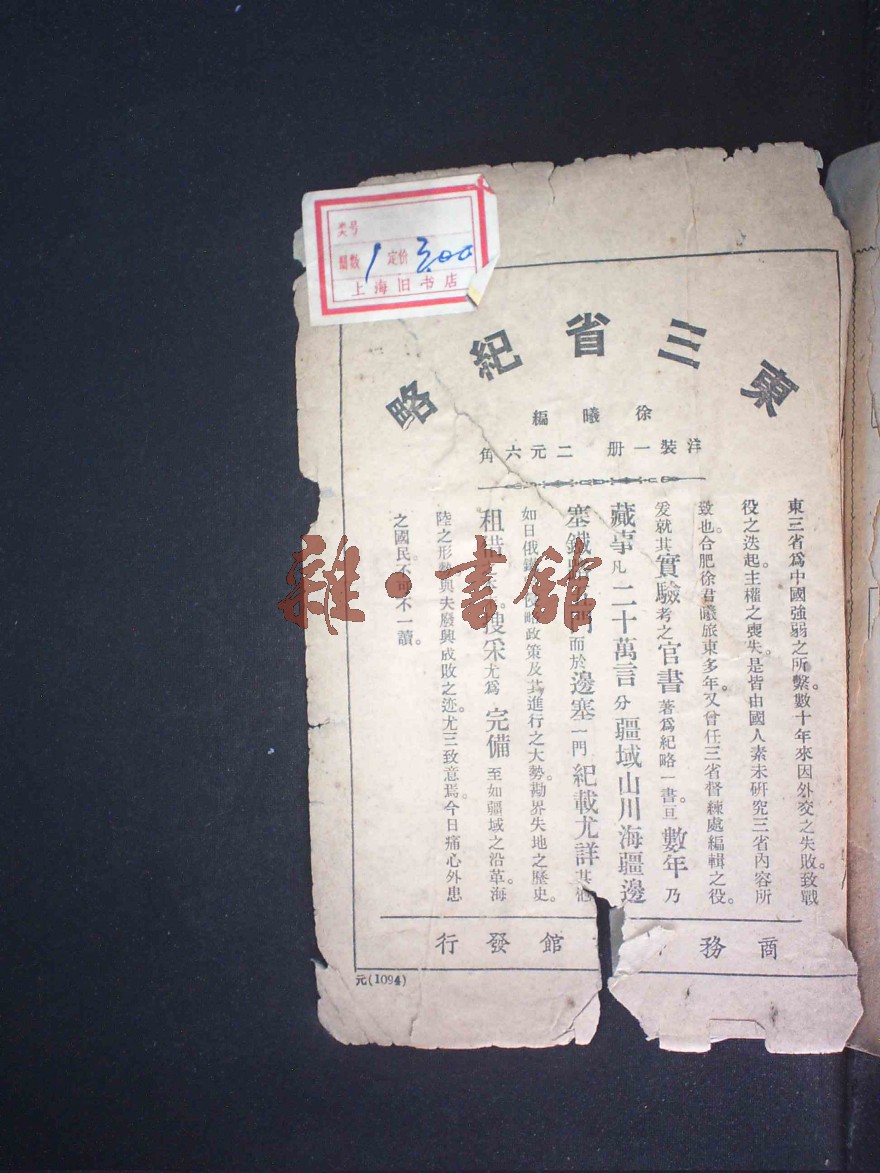 类号
册数 1 定价 3.00
上海旧书店
東三省紀略
徐曦編
洋裝一册 二元六角
東三省爲中國強弱之所繫。數十年來因外交之失敗。致戰
役之迭起。主權之喪失。是皆由國人素未硏究三省內容所
致也。合肥徐君曦旅東多年。又曾任三省督練處編輯之役。
爰就其實驗考之官書著爲紀略一書。亘數年乃
蕆事凡二十萬言分疆域山川海疆邊
塞鐵路 門而於邊塞一門紀載尤詳其他
如日俄 侵略政策及其進行之大勢。勘界失地之歷史。
租借 搜采尤爲完備至如疆域之沿革。海
陸之形勢與夫廢興成敗之迹。尤三致意焉。今日痛心外患
之國民。不可不一讀。
商務 館發行
元(1094)
雜·書館